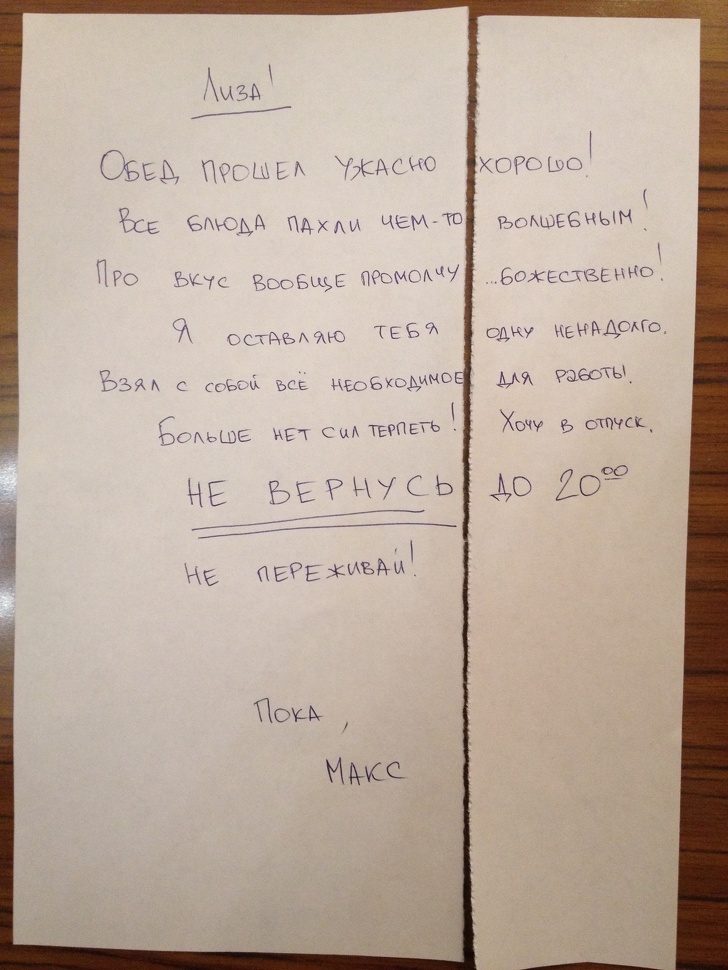 Лиза!
Обед прошел ужасно хорошо!
Все блюда пахли чем-то волшебным!
Про вкус вообще промолчу ...божественно!
Я оставляю тебя одну ненадолго.
Взял с собой всё необходимое для работы.
Больше нет сил терпеть! Хочу в отпуск.
НЕ ВЕРНУСЬ ДО 20⁰⁰
Не переживай!
Пока,
Макс